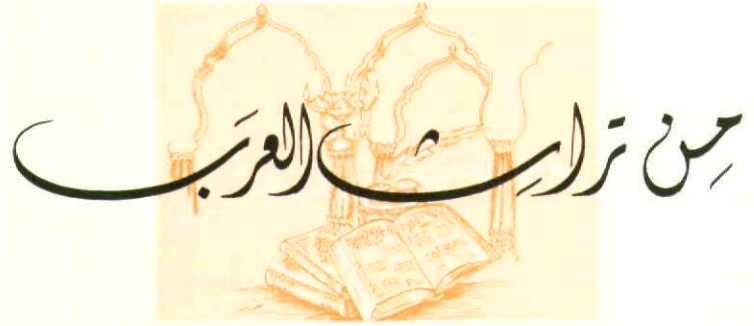 مِن تراثِ العرَب